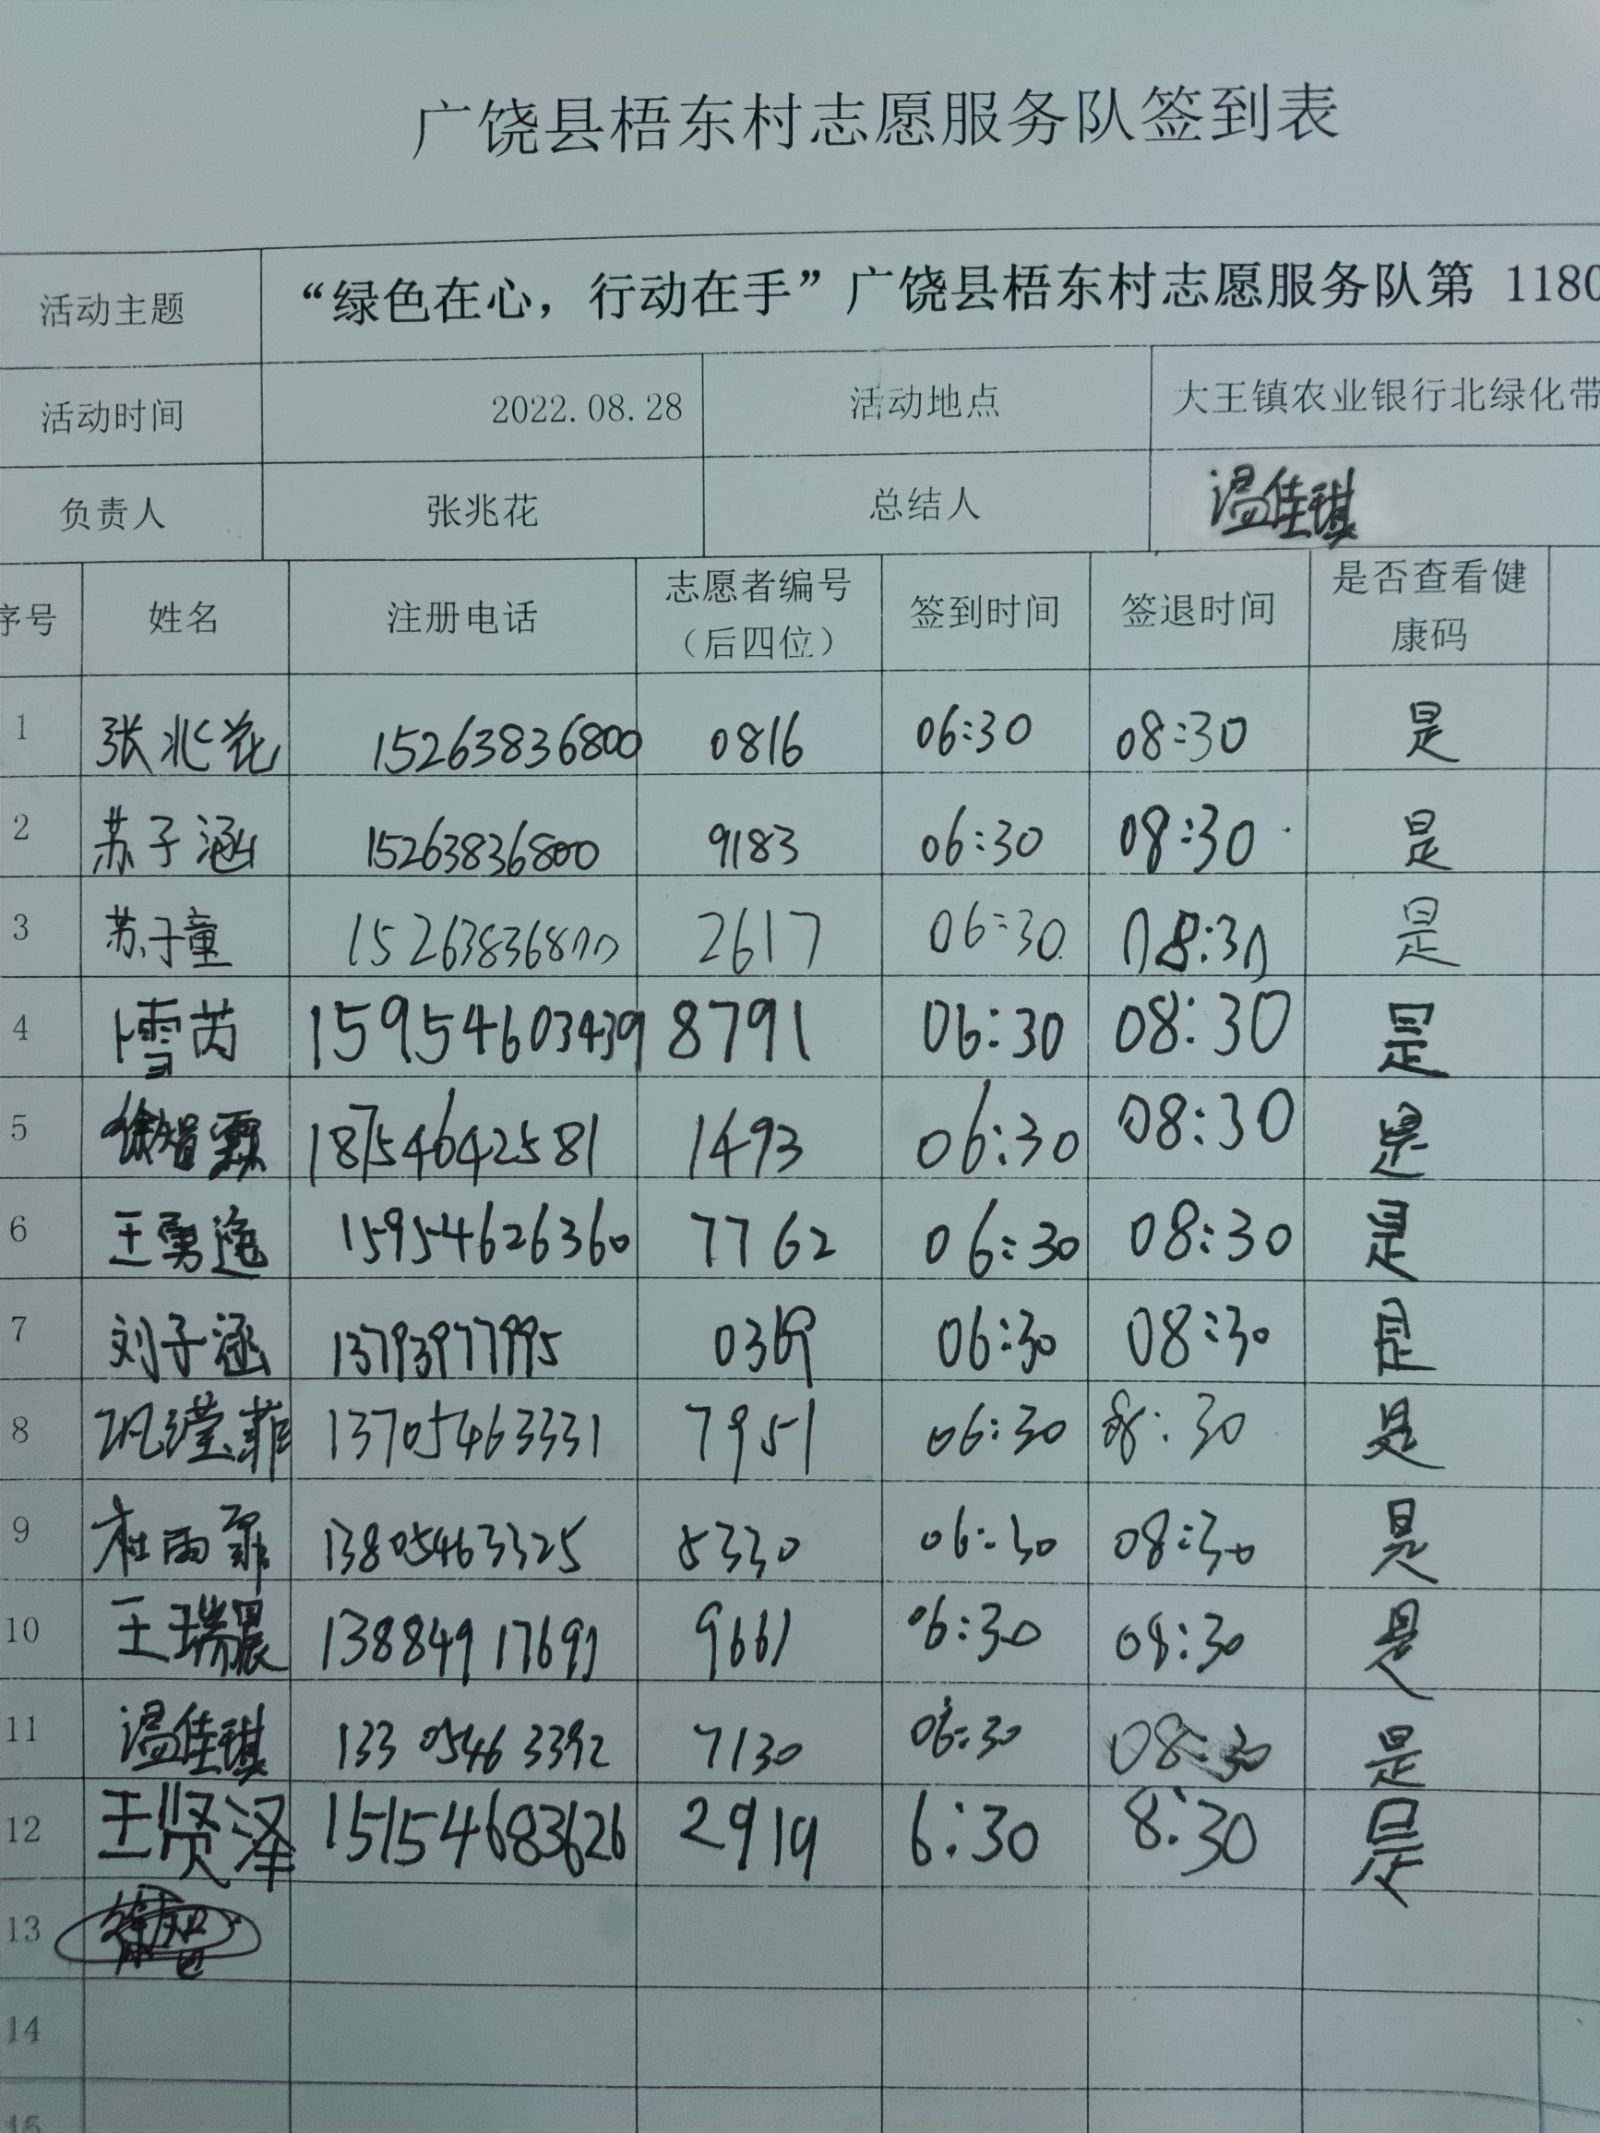 广饶县梧东村志愿服务队签到表
活动主题 “绿色在心，行动在手”广饶县梧东村志愿服务队第 1180
活动时间 2022.08.28 活动地点 大王镇农业银行北绿化带
负责人 张兆花 总结人 温佳琪
序号 姓名 注册电话 志愿者编号（后四位） 签到时间 签退时间 是否查看健康码
1 张兆花 15263836800 0816 06:30 08:30 是
2 苏子涵 15263836800 9183 06:30 08:30 是
3 苏子童 15263836800 2617 06:30 08:30 是
4 卜雪芮 15954603439 8791 06:30 08:30 是
5 徐智霖 18754642581 1493 06:30 08:30 是
6 王勇 15954626360 7762 06:30 08:30 是
7 刘子涵 13793977995 0369 06:30 08:30 是
8 巩滢菲 13705463331 7951 06:30 08:30 是
9 杜雨霏 13805463325 5330 06:30 08:30 是
10 王瑞晨 13884917697 9661 06:30 08:30 是
11 温佳琪 13305463392 7130 06:30 08:30 是
12 王贤泽 15154683626 2919 6:30 8:30 是
13
14
15